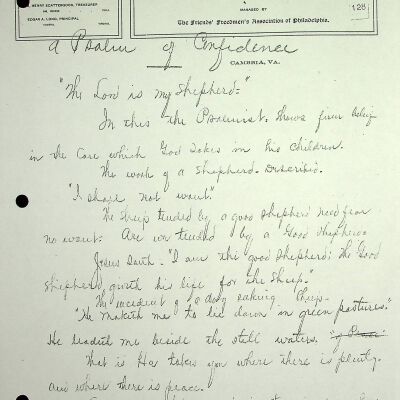 HENRY SCATTERGOOD, TREASURER
EDGAR A. LONG, PRINCIPAL
MANAGED BY
The Friends' Freedmen's Association of Philadelphia.
128
A Psalm of Confidence
CAMBRIA, VA.
"The Lord is my Shepherd-"
In this the Psalmist. shows firm belief
in the care which God takes in his children.
The work of a Shepherd. Described.
"I shall not want."
The Sheep tended by a good shepherd need fear
no want. Are we tended by a Good Shepherd-
Jesus saith - "I am the good Shepherd: the Good
Shepherd giveth his life for the Sheep."
The incident of a dog eating Sheep-
"He maketh me to lie down in green pastures."
He leadeth me beside the still waters.
That is He takes you where there is plenty-
and where there is peace.